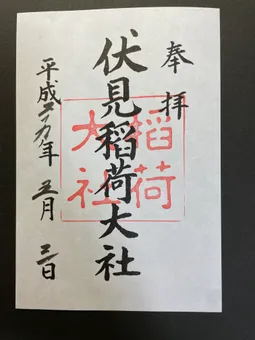 奉拝
伏見稲荷大社
稲荷大社
平成 年 五月 三日